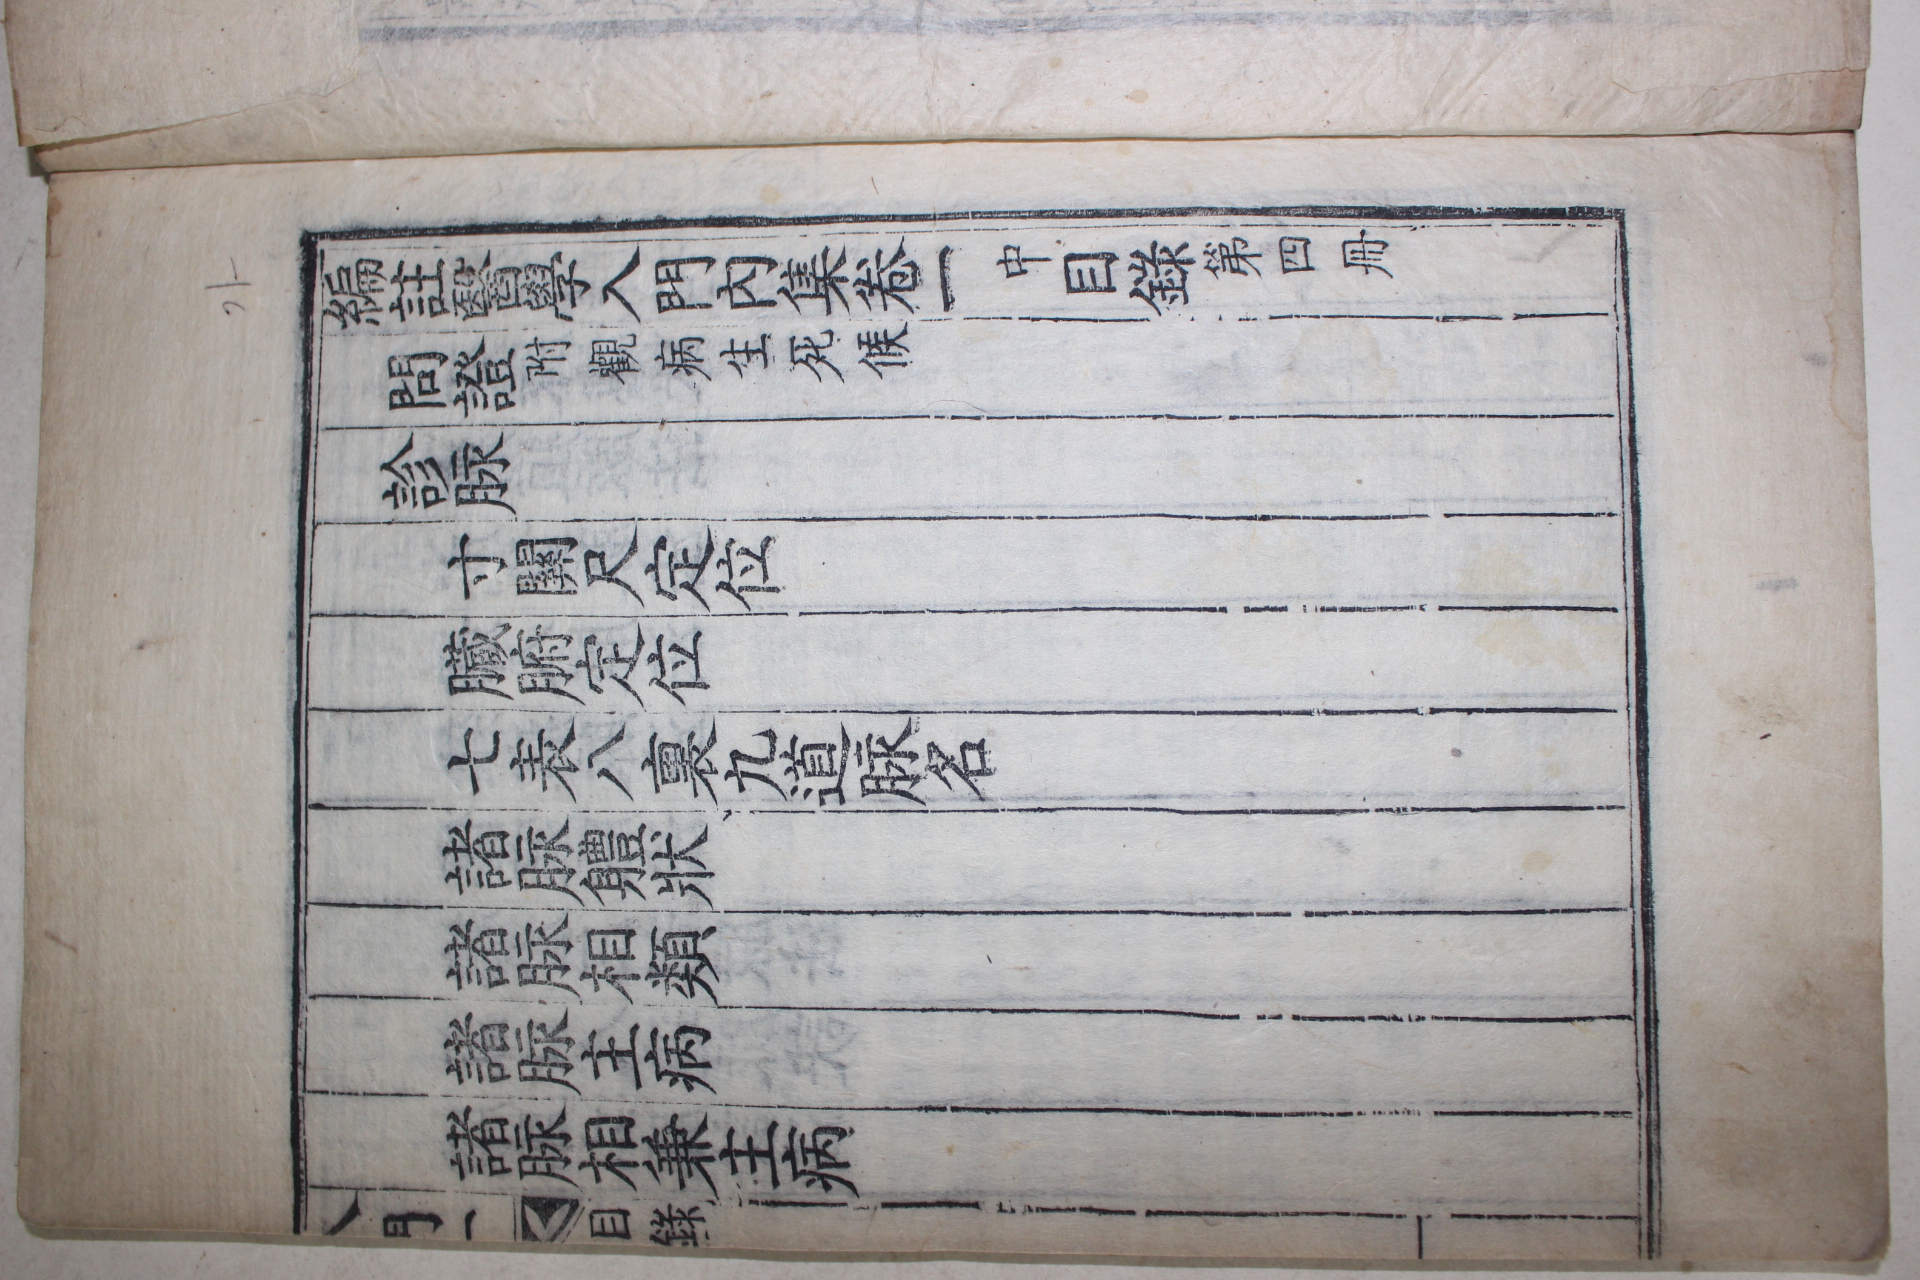 가
編註醫學入門內集卷一 中 目錄 第四冊
問證 附觀病生死候
診脉
寸關尺定位
臟腑定位
七表八裏九道脉名
諸脉體狀
諸脉相類
諸脉主病
諸脉相兼主病
入門一 目錄 一